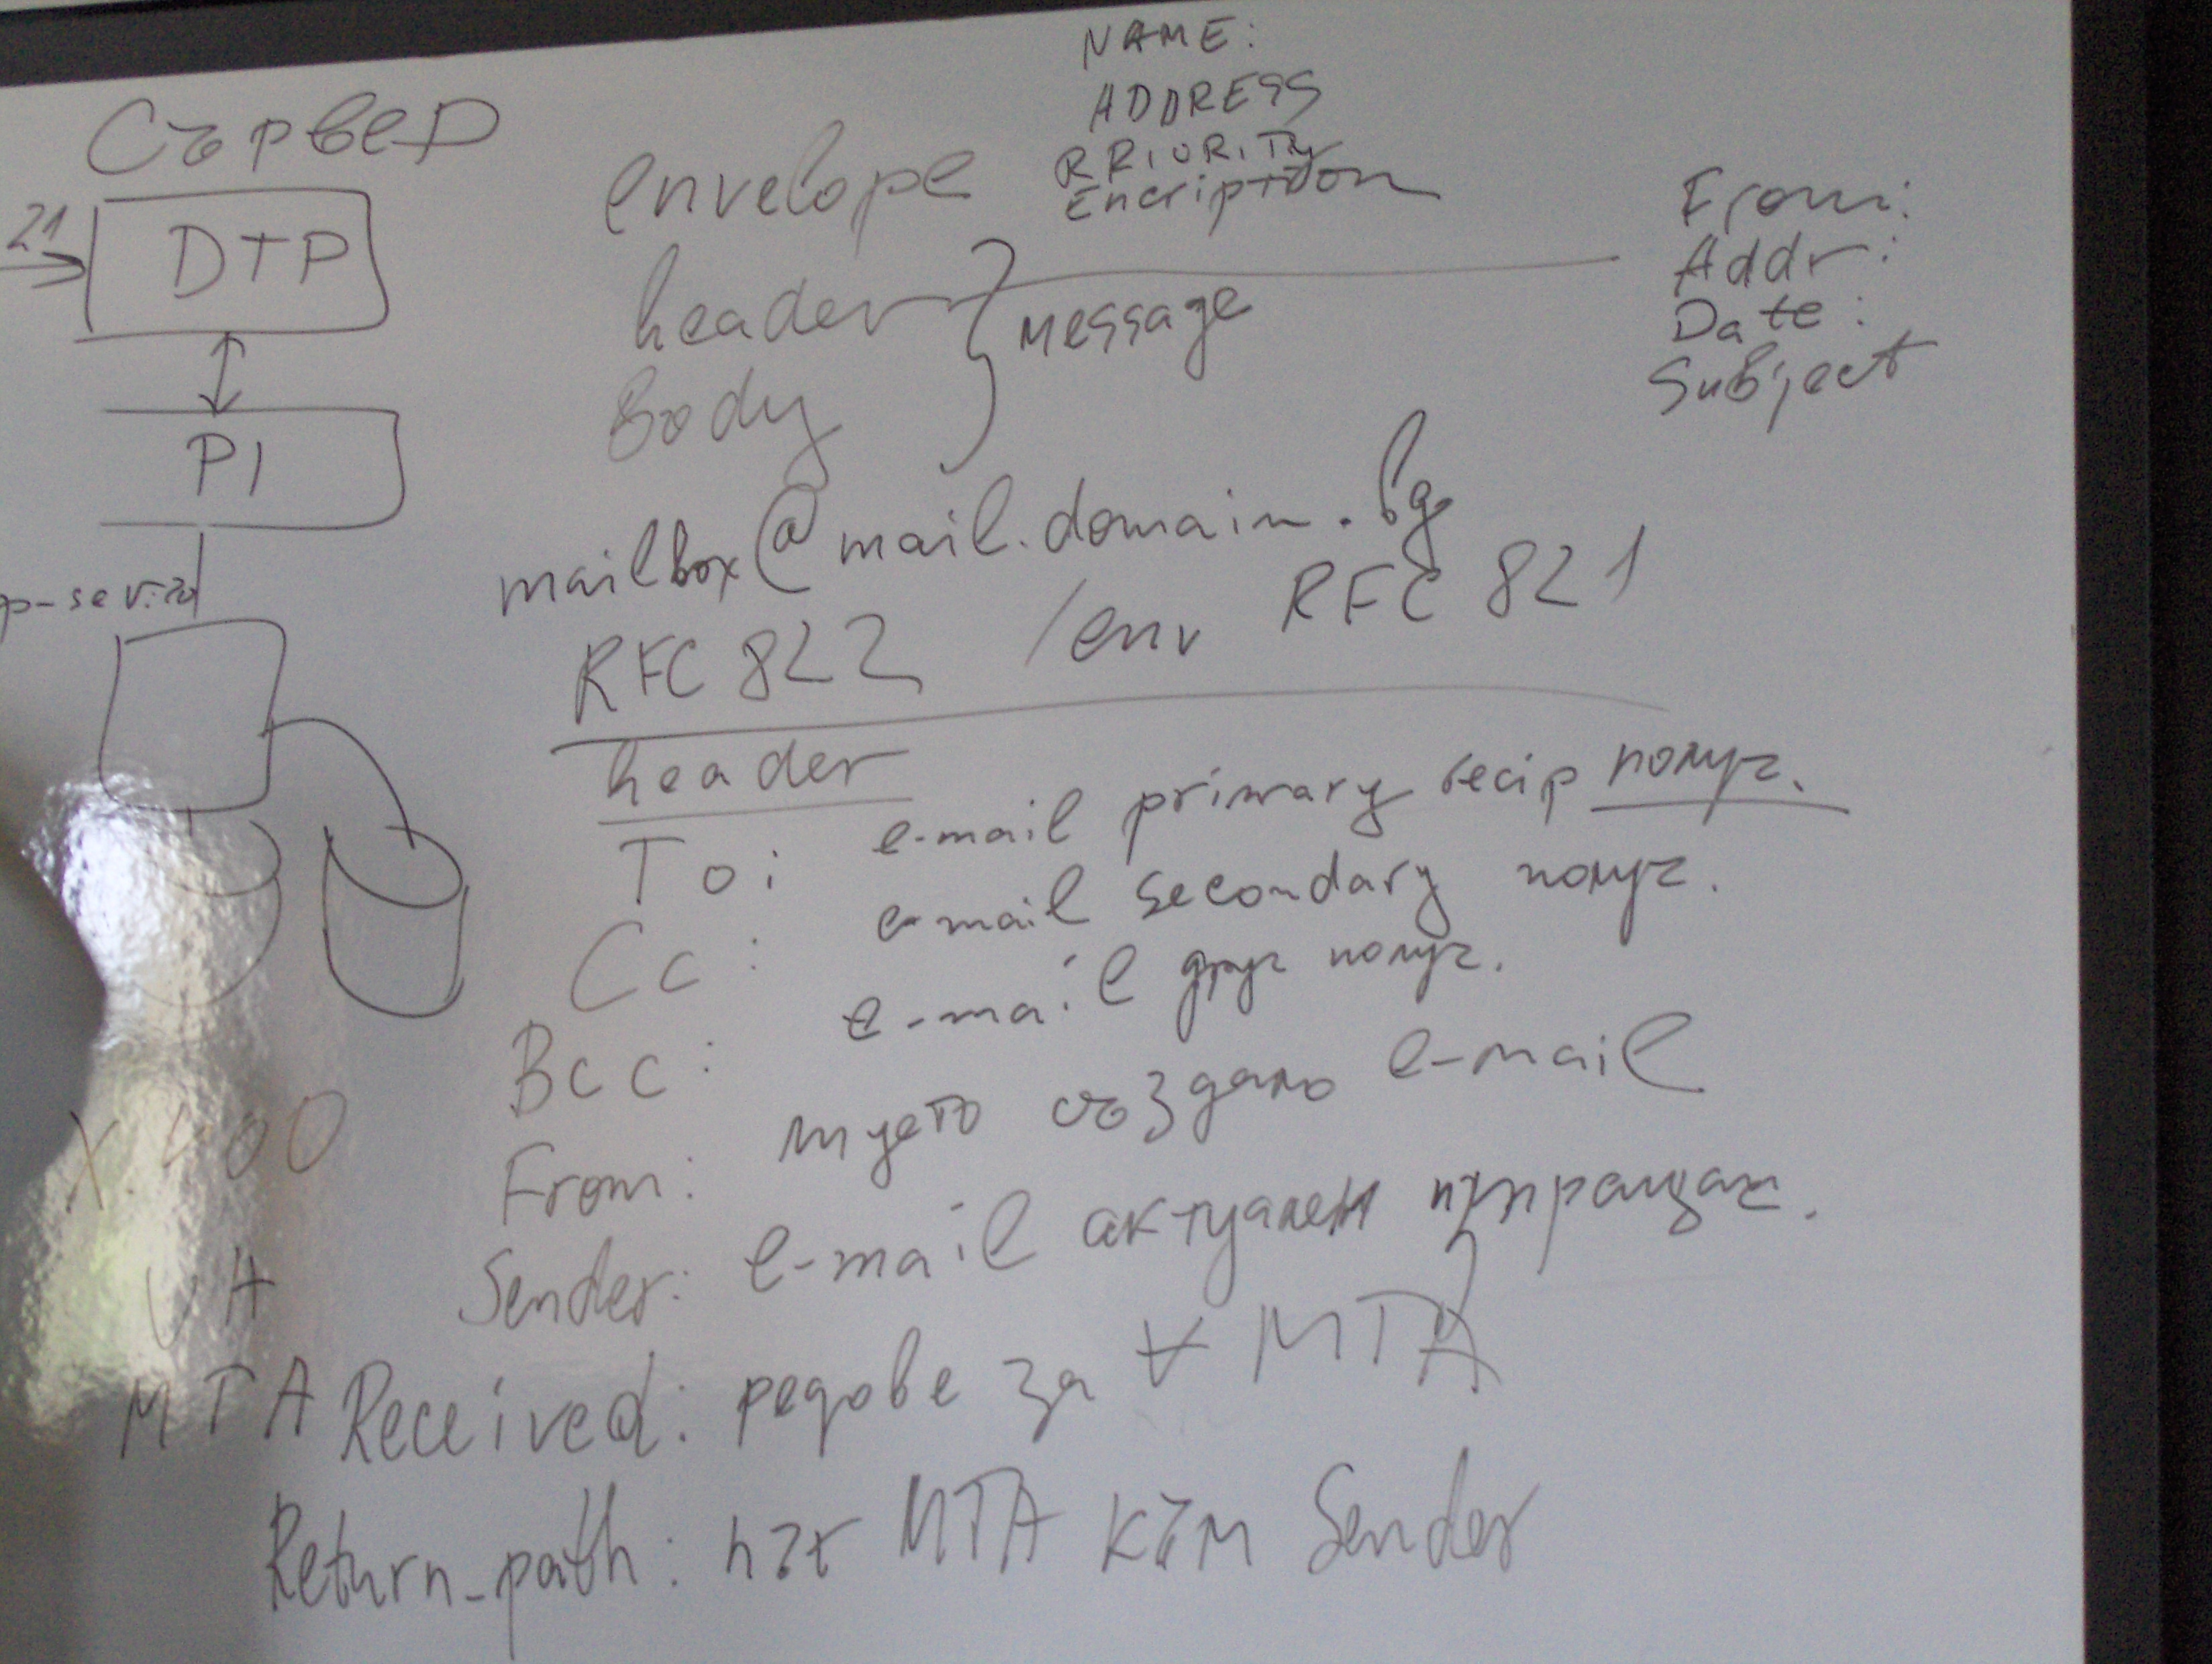 Сървер
21
DTP
PI
NAME:
ADDRESS
PRIORITY
Encription
envelope
header
Body
Message
From:
Addr:
Date:
Subject
mailbox@mail.domain.bg
RFC 822 /env RFC 821
header
To: e-mail primary recip получ.
Cc: e-mail secondary получ.
Bcc: e-mail друг получ.
From: създало e-mail
Sender: e-mail актуален изпращач.
Received: редове за ∀ MTA
Return_path: път MTA към Sender
X.400
UA
MTA